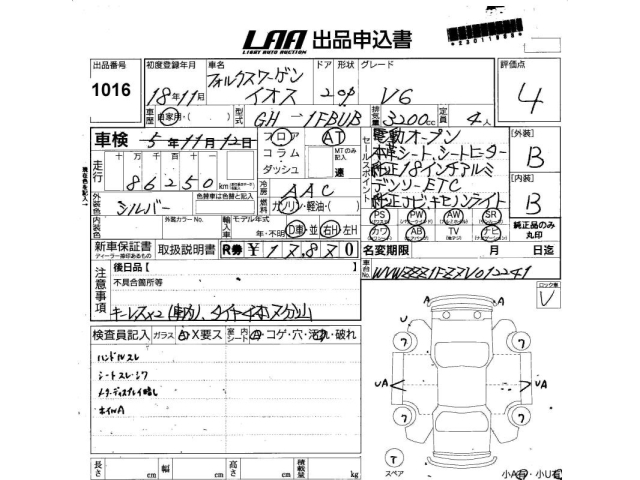 LAA 出品申込書
LIGHT AUTO AUCTION
出品番号 初度登録年月 車名 ドア 形状 グレード 評価点
1016 18年11月 フォルクスワーゲン イオス 2 OP V6 4
車歴 自家用・( ) 型式 GH-1FBUB 排気量 3200cc 定員 4人
車検 5年11月12日 フロア AT
コラム MTのみ記入
ダッシュ 速
セールスポイント 電動オープン
本革シート、シートヒーター
純正18インチアルミ
デンソーETC
純正ナビ、キセノンライト
【外装】 B
【内装】 B
走行 十万 万 千 百 十
86250 km
冷房 AAC
外装色 シルバー 色替車は色替と記入 燃料 ガソリン・軽油・( )
PS AW SR
(パワーウインドウ)
カワ AB TV ナビ
(エアバッグ)
純正品のみ丸印
内装色 外装カラーNo. 輸入車 モデル年式 年・不明 D車・並 右H・左H
新車保証書 取扱説明書 R券 ¥17,870 名変期限 月 日迄
ディーラー捺印あるもの
車台No. WVWZZZ1FZ7V012241
注意事項 後日品【 】
不具合箇所等
キーレス×2(車内)、タイヤ4本7分山
ロック No.
検査員記入 ガラス A・X要ス 室内シート コゲ・穴・汚れ・破れ
ハンドルスレ
シートスレ・シワ
メーターディスプレイ略し
ホイルA
U A A A
UA UA
T
スペア
長さ cm 幅 cm 高さ cm 積載量 kg
小A有・小U有